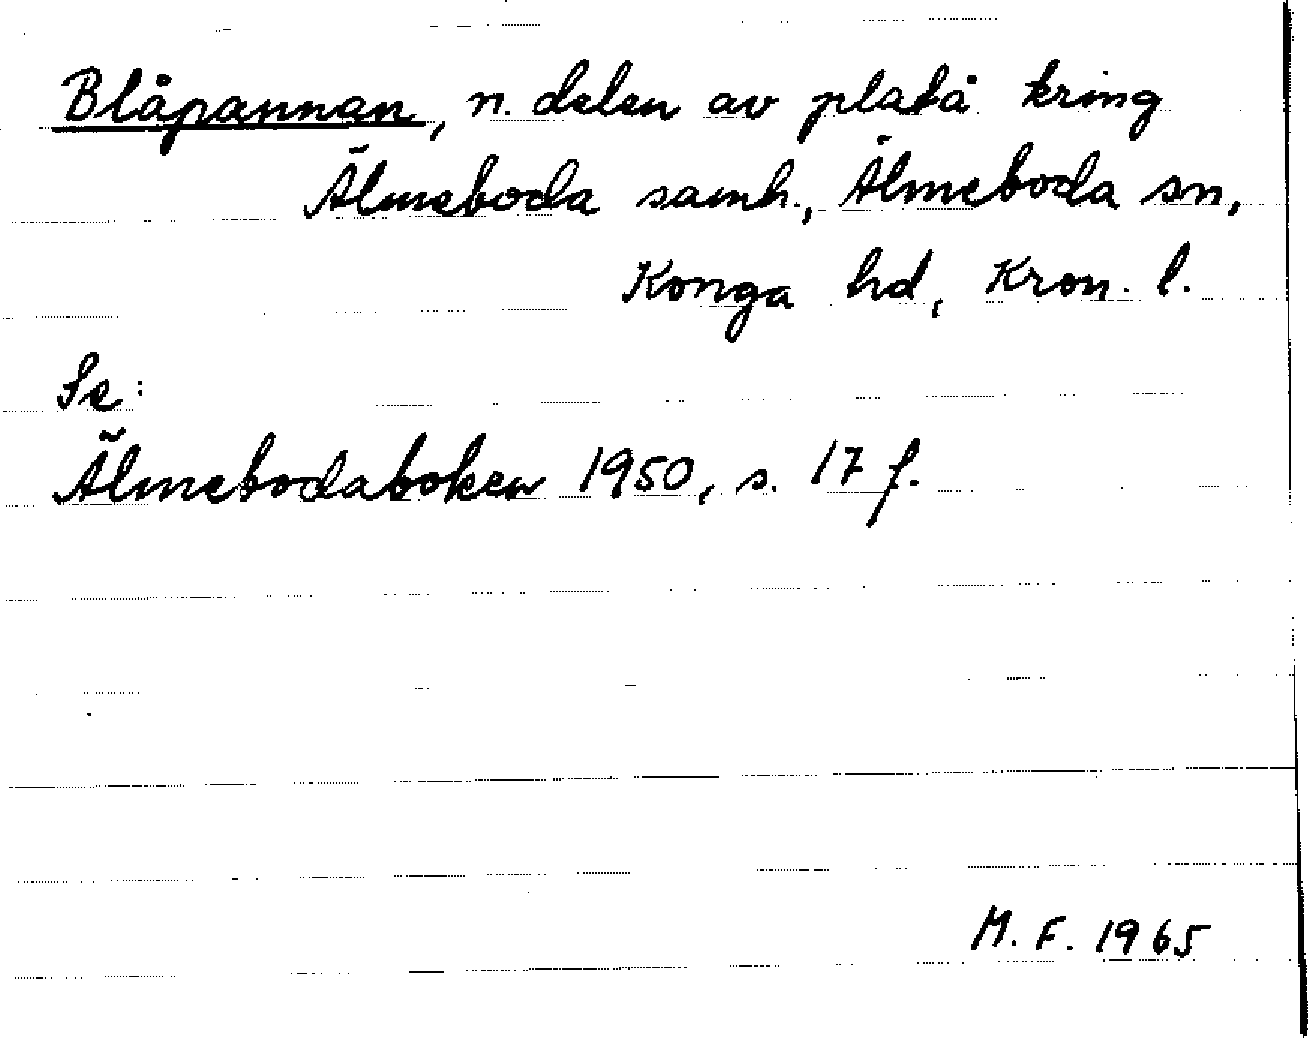 Blåpannan, n. delen av platå kring
Älmeboda samh., Älmeboda sn,
Konga hd, Kron. l.
Se:
Älmebodaboken 1950, s. 17 f.
M. F. 1965